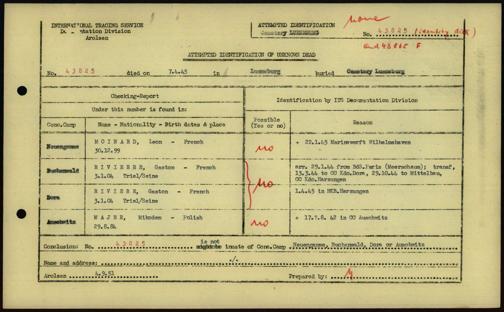 INTERNATIONAL TRACING SERVICE
Documentation Division
Arolsen
ATTEMPTED IDENTIFICATION
Cemetery LUENEBURG
none
No. 43825 (Cemetery doc)
and 43865 F
ATTEMPTED IDENTIFICATION OF UNKNOWN DEAD
No. 43825 died on 7.4.45 in Luneburg buried Cemetery Luneburg
Checking-Report
Under this number is found in:
Identification by ITS Documentation Division
Conc.Camp Name - Nationality - Birth dates & place Possible (Yes or no) Reason
Neuengamme MOINARD, Leon - French no + 22.1.45 Marinewerft Wilhelmshaven
30.12.99
Buchenwald RIVIERRE, Gaston - French arr. 29.1.44 from BdS.Paris (Meerschaum); transf.
3.1.04 Triel/Seine no 13.3.44 to CC Kdo.Dora, 29.10.44 to Mittelbau,
CC Kdo.Harzungen
Dora RIVIERE, Gaston - French 1.4.45 in HKB.Harzungen
3.1.04 Triel/Seine
Auschwitz MAJER, - Polish no + 17.7.8. 42 in CC Auschwitz
29.8.84
Conclusion: No. 43825 is not inmate of Conc.Camp Neuengamme, Buchenwald, Dora or Auschwitz
Name and address: ./.
Arolsen 4.9.51 Prepared by: